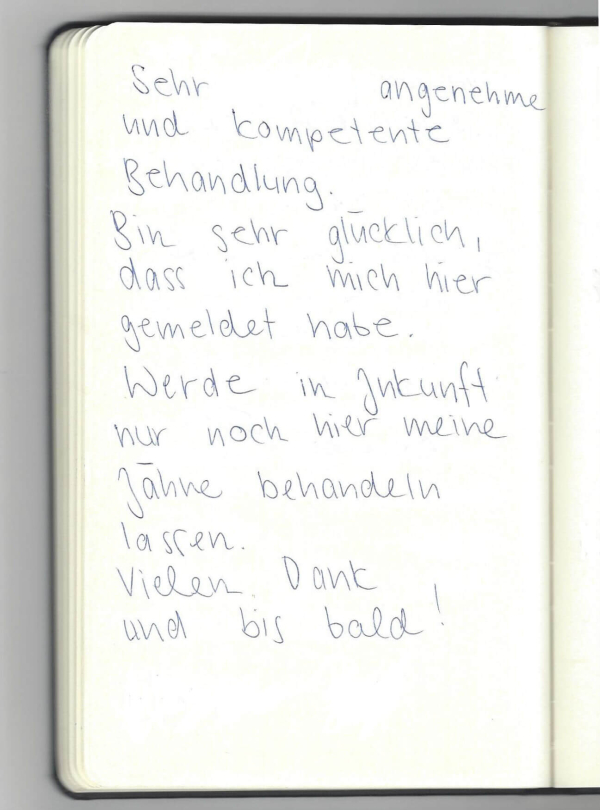 Sehr angenehme
und kompetente
Behandlung.
Bin sehr glücklich,
dass ich mich hier
gemeldet habe.
Werde in Zukunft
nur noch hier meine
Zähne behandeln
lassen.
Vielen Dank
und bis bald!